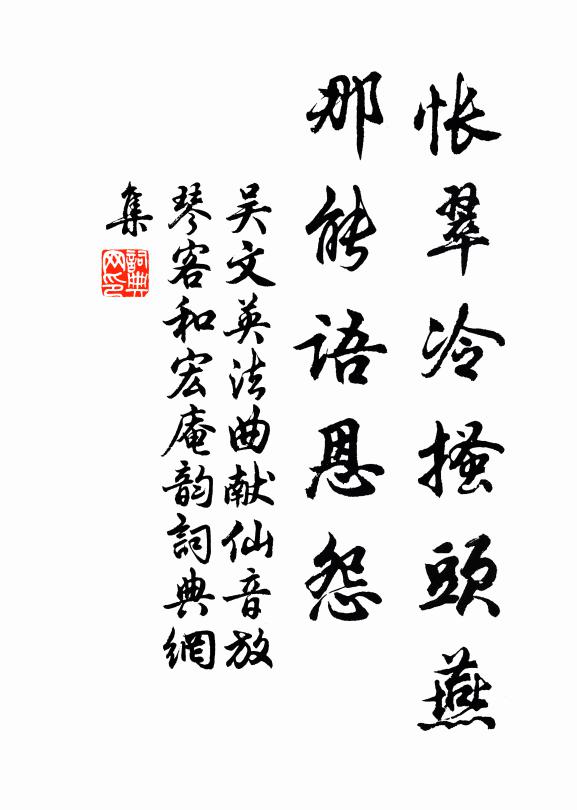 怅翠冷搔頭燕
那能語恩怨
吴文英法曲献仙音放
琴客和宏庵韵詞典網
集
詞典网印